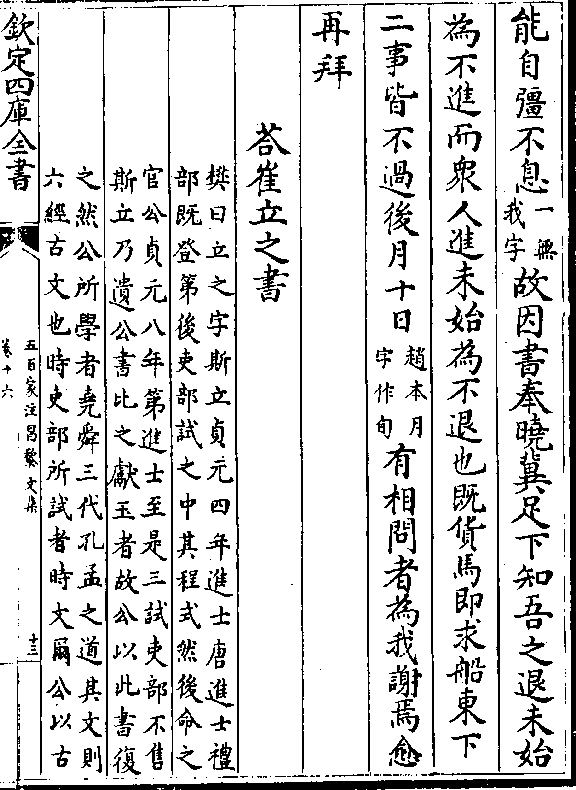 能自彊不息一無我字故因書奉曉冀足下知吾之退未始
為不進而衆人進未始為不退也既貨馬即求船東下
二事皆不過後月十日趙本月字作旬有相問者為我謝焉愈
再拜
答崔立之書
樊曰立之字斯立貞元四年進士唐進士禮
部既登第後吏部試之中其程式然後命之
官公貞元八年第進士至是三試吏部不售
斯立乃遺公書比之獻玉者故公以此書復
之然公所學者堯舜三代孔孟之道其文則
六經古文也時吏部所試者時文爾公以古
欽定四庫全書
卷十六
五百家注昌黎文集
十三